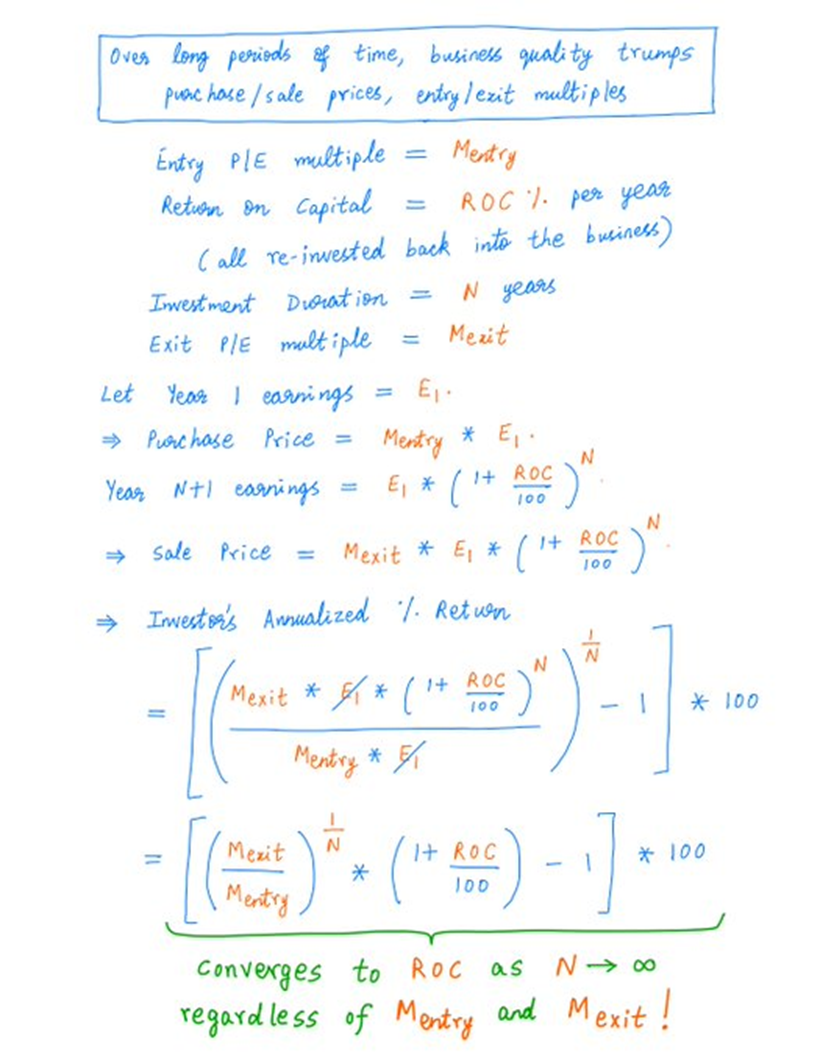 Over long periods of time, business quality trumps
purchase/sale prices, entry/exit multiples
Entry P/E multiple = Mentry
Return on Capital = ROC % per year
(all re-invested back into the business)
Investment Duration = N years
Exit P/E multiple = Mexit
Let Year 1 earnings = E₁.
⇒ Purchase Price = Mentry * E₁.
Year N+1 earnings = E₁ * (1+ ROC/100)^N.
⇒ Sale Price = Mexit * E₁ * (1+ ROC/100)^N.
⇒ Investor's Annualized % Return
= [((Mexit * E₁ * (1+ ROC/100)^N) / (Mentry * E₁))^(1/N) - 1] * 100
= [(Mexit/Mentry)^(1/N) * (1+ ROC/100) - 1] * 100
converges to ROC as N → ∞
regardless of Mentry and Mexit!